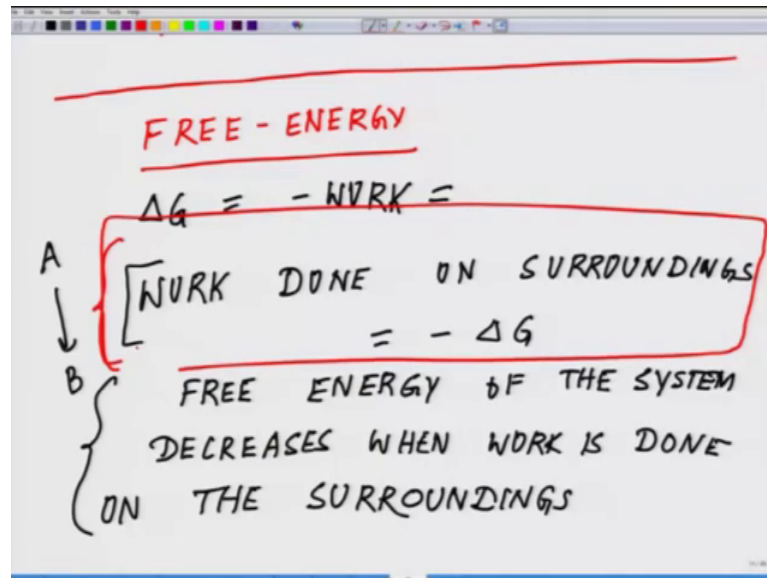 FREE - ENERGY
ΔG = - WORK =
A
WORK DONE ON SURROUNDINGS
= - ΔG
B
FREE ENERGY OF THE SYSTEM
DECREASES WHEN WORK IS DONE
ON THE SURROUNDINGS